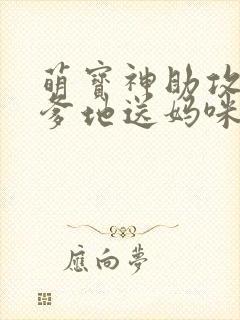 萌寶神助攻
爹地送媽咪
應向夢